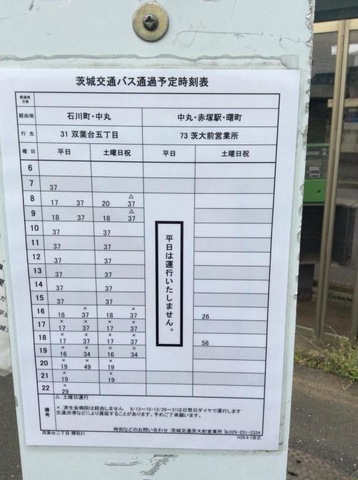 茨城交通バス通過予定時刻表
経由地 石川町・中丸 中丸・赤塚駅・曙町
行先 31 双葉台五丁目 73 茨大前営業所
曜日 平日 土曜日祝 平日 土曜日祝
6
7 37
8 17 37 20 △37
9 18 37 18 △37
10 37 37
11 37 37
12 37 37
13 37 37
14 37 37
15 37 37
16 ×18 37 ×18 37 26
17 ×17 37 ×17 37
18 ×17 37 ×17 37 56
19 ×16 34 ×16 34
20 ×20 49 ×20
21 ×19 ×19
22 ×29
平日は運行いたしません。
備考
△ 土曜日運行
× 済生会病院は経由しません 8/13~15・12/29~31は日祭日ダイヤで運行します
交通渋滞などにより遅延することがあります。予めご了承願います。
時刻などのお問い合わせ 茨城交通茨大前営業所 ℡029-251-2334
双葉台二丁目
H29.4.1改正